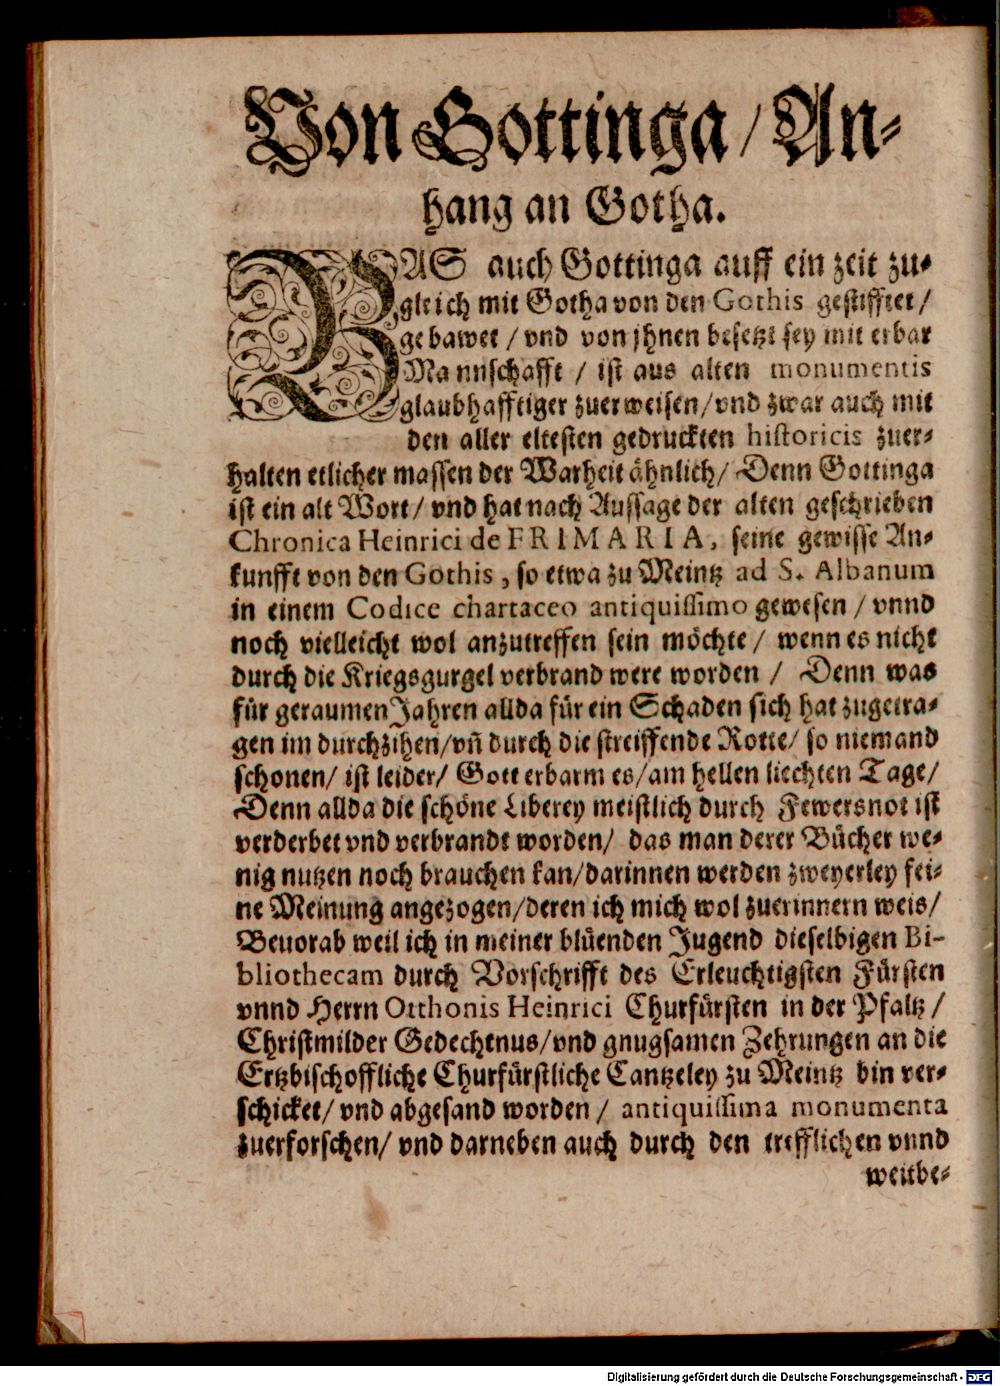 Von Gottinga / An-
hang an Gotha.
DAS auch Gottinga auff ein zeit zu-
gleich mit Gotha von den Gothis gestifftet /
gebawet / vnd von jhnen besetzt sey mit erbar
Mannschafft / ist aus alten monumentis
glaubhafftiger zuerweisen / vnd zwar auch mit
den aller eltesten gedruckten historicis zuer-
halten etlicher massen der Warheit ähnlich / Denn Gottinga
ist ein alt Wort / vnd hat nach Aussage der alten geschrieben
Chronica Heinrici de FRIMARIA, seine gewisse An-
kunfft von den Gothis, so etwa zu Meintz ad S. Albanum
in einem Codice chartaceo antiquissimo gewesen / vnnd
noch vielleicht wol anzutreffen sein möchte / wenn es nicht
durch die Kriegsgurgel verbrand were worden / Denn was
für geraumen Jahren allda für ein Schaden sich hat zugetra-
gen im durchzihen / vñ durch die streiffende Rotte / so niemand
schonen / ist leider / Gott erbarm es / am hellen liechten Tage /
Denn allda die schöne Liberey meistlich durch Fewersnot ist
verderbet vnd verbrandt worden / das man derer Bücher we-
nig nutzen noch brauchen kan / darinnen werden zweyerley fei-
ne Meinung angezogen / deren ich mich wol zuerinnern weis /
Beuorab weil ich in meiner blüenden Jugend dieselbigen Bi-
bliothecam durch Vorschrifft des Erleuchtigsten Fürsten
vnnd Herrn Otthonis Heinrici Churfürsten in der Pfaltz /
Christmilder Gedechtnus / vnd gnugsamen Zehrungen an die
Ertzbischoffliche Churfürstliche Cantzeley zu Meintz bin ver-
schicket / vnd abgesand worden / antiquissima monumenta
zuerforschen / vnd darneben auch durch den trefflichen vnnd
weitbe-
Digitalisierung gefördert durch die Deutsche Forschungsgemeinschaft - DFG